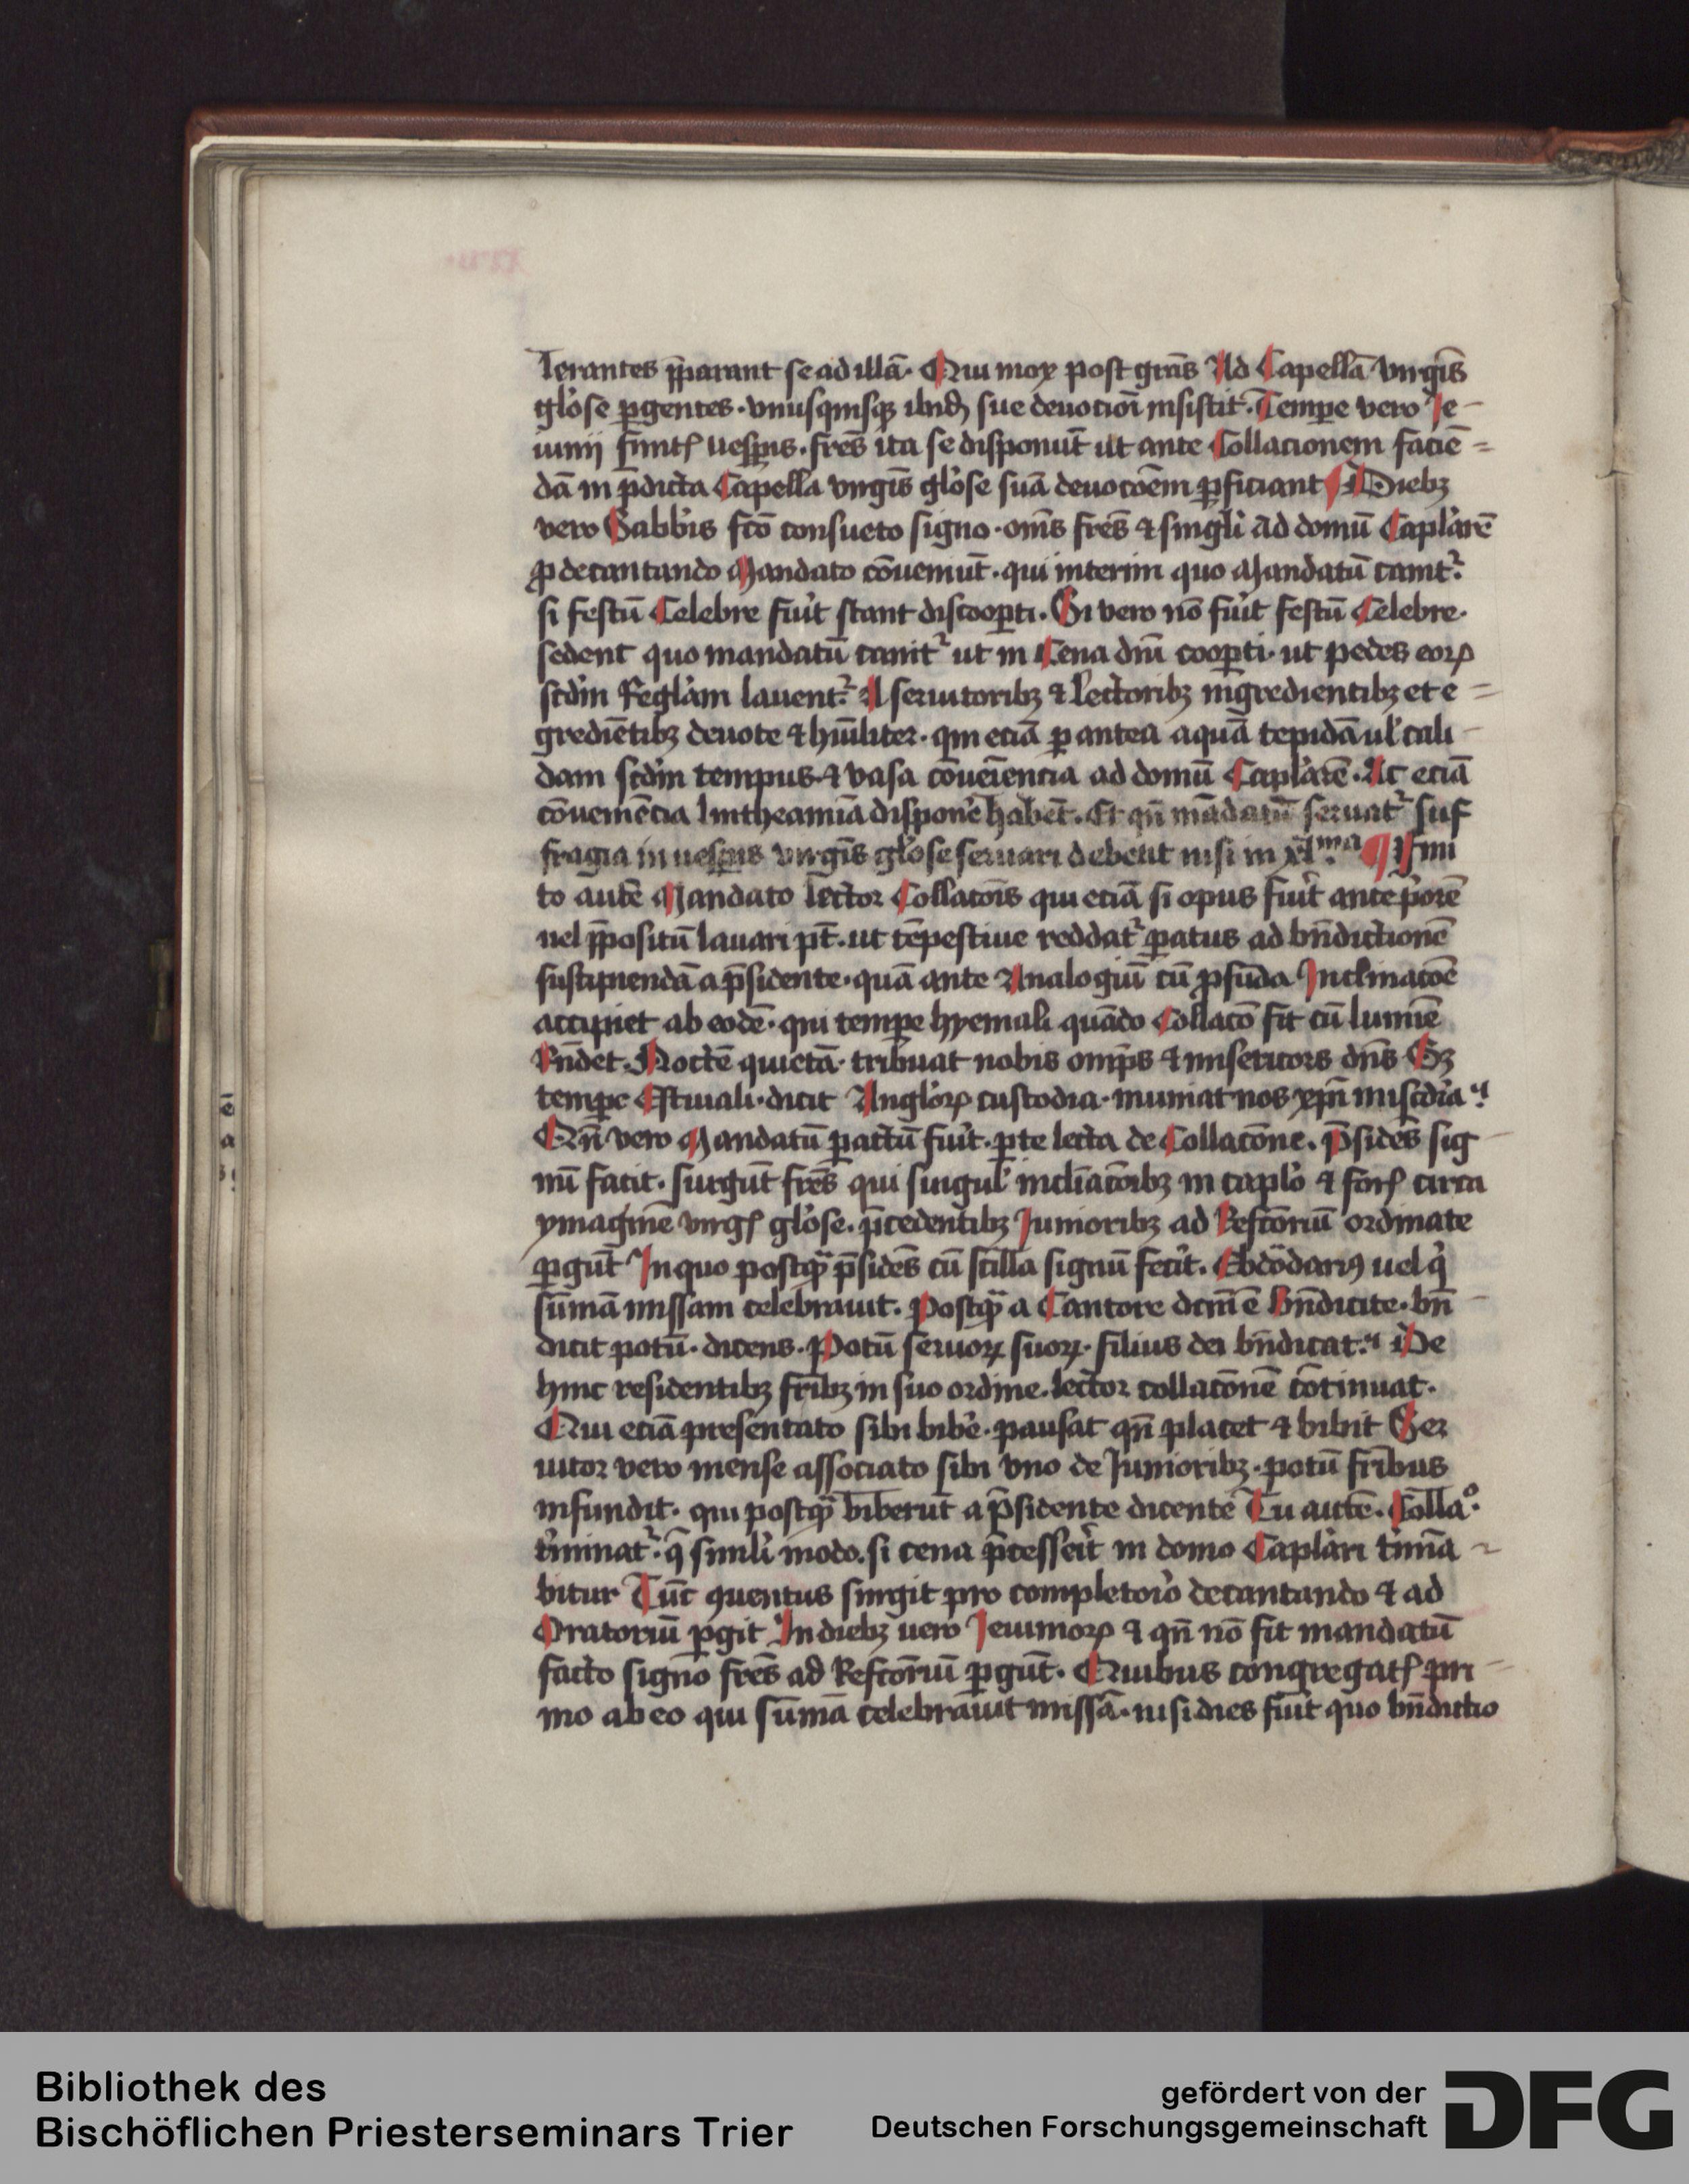 lerantes p̄parant se ad illā. Qui mox post grās Ad Capellā virgīs
glo̓se ꝑgentes. vnusquisqꝫ ibidē sue deuocioī insistit. Tempe vero Je-
iunij finitꝭ uesꝑis. frēs ita se disponūt ut ante Collacionem faciē=
dā in p̄dicta Capella virgīs glo̓se suā deuocōem ꝑficiant ¶ Diebꝫ
vero Sabbīs fc̄o consueto signo. om̄s frēs ⁊ singli̓ ad domū Capla̓rē
ꝓ decantando Mandato cōueniūt. qui interim quo Mandatū canit᷑.
si festū Celebre fuit̓ stant discooꝑti. Si vero nō fuit̓ festū Celebre.
sedent quo mandatū canit᷑ ut in Cena dnī cooꝑti. ut pedes eoꝝ
scd̓m Regla̓m lauent᷑. A seruitoribꝫ ⁊ lectoribꝫ ingredientibꝫ et e=
grediētibꝫ deuote ⁊ hūiliter. qui eciā ꝑ antea aquā tepidā ul̓ cali-
dam scd̓m tempus ⁊ vasa cōueīencia ad domū Capla̓rē. Ac eciā
cōueniēcia lintheamīa disponē habēt. Et qn̄ mādatū seruat᷑ suf
fragia in uesꝑis virgīs glo̓se seruari debent nisi in xl.ma ¶ Fini
to autē Mandato lector Collacōis qui eciā si opus fuit̓ ante p̓orē
uel p̄positū lauari pt̄. ut tēpestiue reddat᷑ ꝑatus ad bn̄dictionē
suscipiendā a p̄sidente. quā ante Analogiū cū ꝓfūda Inclinacōe
accipiet ab eodē. qui tempe hyemali quādo Collacō fit cū lumīe
Rn̄det. Noctē quietā. tribuat nobis omp̄s ⁊ misericors dn̄s Sꝫ
tempe Estiuali. dicit Anglo̓ꝝ custodia. muniat nos xpī miscd̓ia.
Qn̄ vero Mandatū ꝑactū fuit̓. ꝑte lecta de Collacōne. p̄sidēs sig-
nū facit. surgūt frēs qui singul̓ incliacōibꝫ in caplo̓ ⁊ forꝭ circa
ymaginē virgꝭ glo̓se. p̄cedentibꝫ Junioribꝫ ad Refcōriū ordinate
ꝑgūt In quo postqᷓ p̄sidēs cū scilla signū fecit̓. Ebdōdariꝯ uel q̓
sūmā missam celebrauit. Postqᷓ a Cantore dcm̄ ē Bn̄dicite. bn̄-
dicit potū. dicens. Potū seruoꝝ suoꝝ. filius dei bn̄dicat. De
hinc residentibꝫ frībꝫ in suo ordine. lector collacōnē cōtinuat.
Qui eciā presentato sibi bibe̓. pausat qn̄ placet ⁊ bibit Ser
uitor vero mense associato sibi vno de Junioribꝫ. potū frībus
infundit. qui postqᷓ biberūt a p̄sidente dicente Tu autē. Collaᵒ.
t̓minat᷑. q̄ simili̓ modo. si cena p̄cesserit̓ in domo Capla̓ri t̓minā-
bitur Tūc ꝯuentus surgit pro completor̓o decantando ⁊ ad
Oratoriū ꝑgit In diebꝫ uero Jeiunioꝝ ⁊ qn̄ nō fit mandatū
facto signo frēs ad Refcōriū ꝑgūt. Quibus congregatꝭ pri-
mo ab eo qui sūmā celebrauit missā. nisi dies fuit̓ quo bn̄dictio
ē
a
Bibliothek des
Bischöflichen Priesterseminars Trier
gefördert von der
Deutschen Forschungsgemeinschaft
DFG